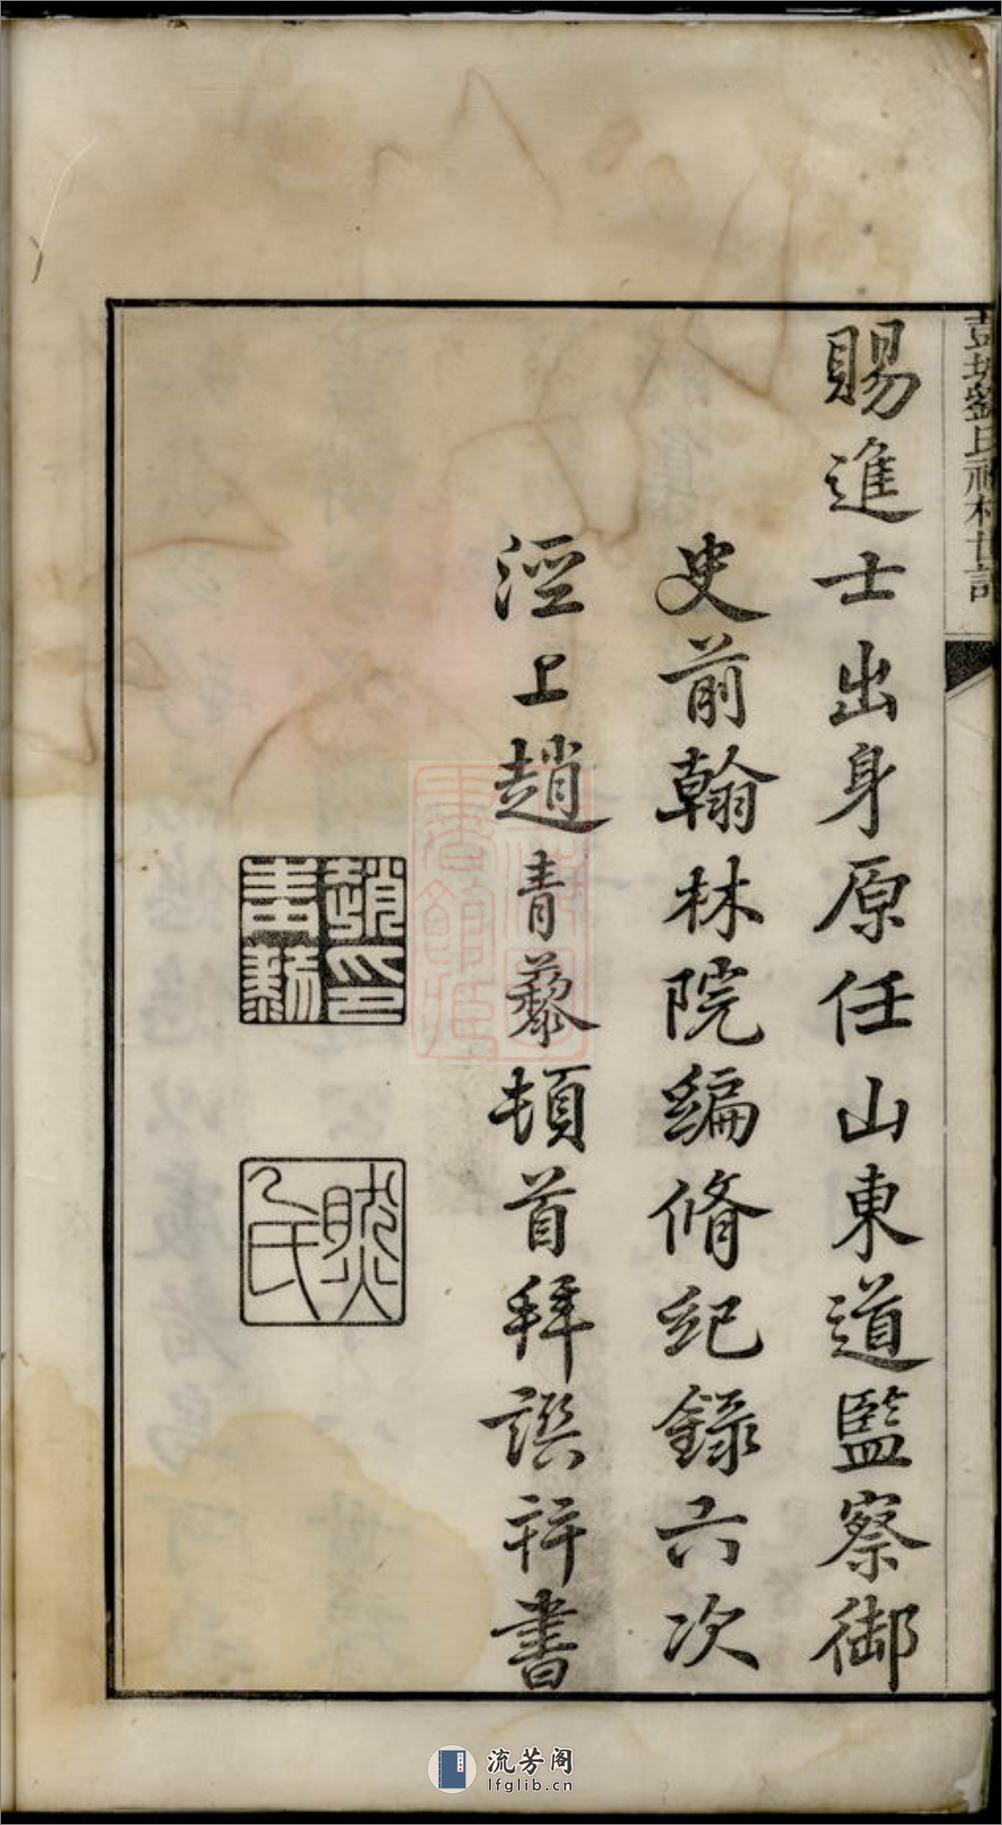 彭城劉氏祠村世記
賜進士出身原任山東道監察御
史前翰林院編脩紀錄六次
涇上趙青藜頓首拜譔并書
趙印青藜
然乙氏
流芳阁
lfglib.cn